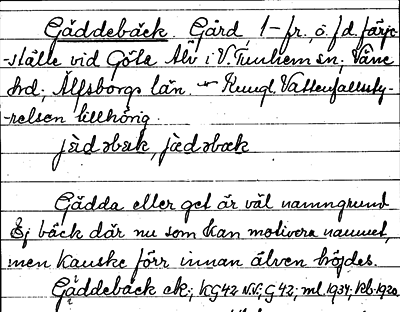 Gäddebäck. Gård 1-fr., o. f.d. färje-
ställe vid Göta Älv i V. Tunhem sn, Väne
hd, Älfsborgs län. Kungl. Vattenfallssty-
relsen tillhörig.
Gädda eller get är väl namngrund.
Ej bäck där nu som kan motivera namnet,
men kanske förr innan älven höjdes.
Gäddebäck ek; KG42 NV; G42; ml. 1934; Kb. 1920